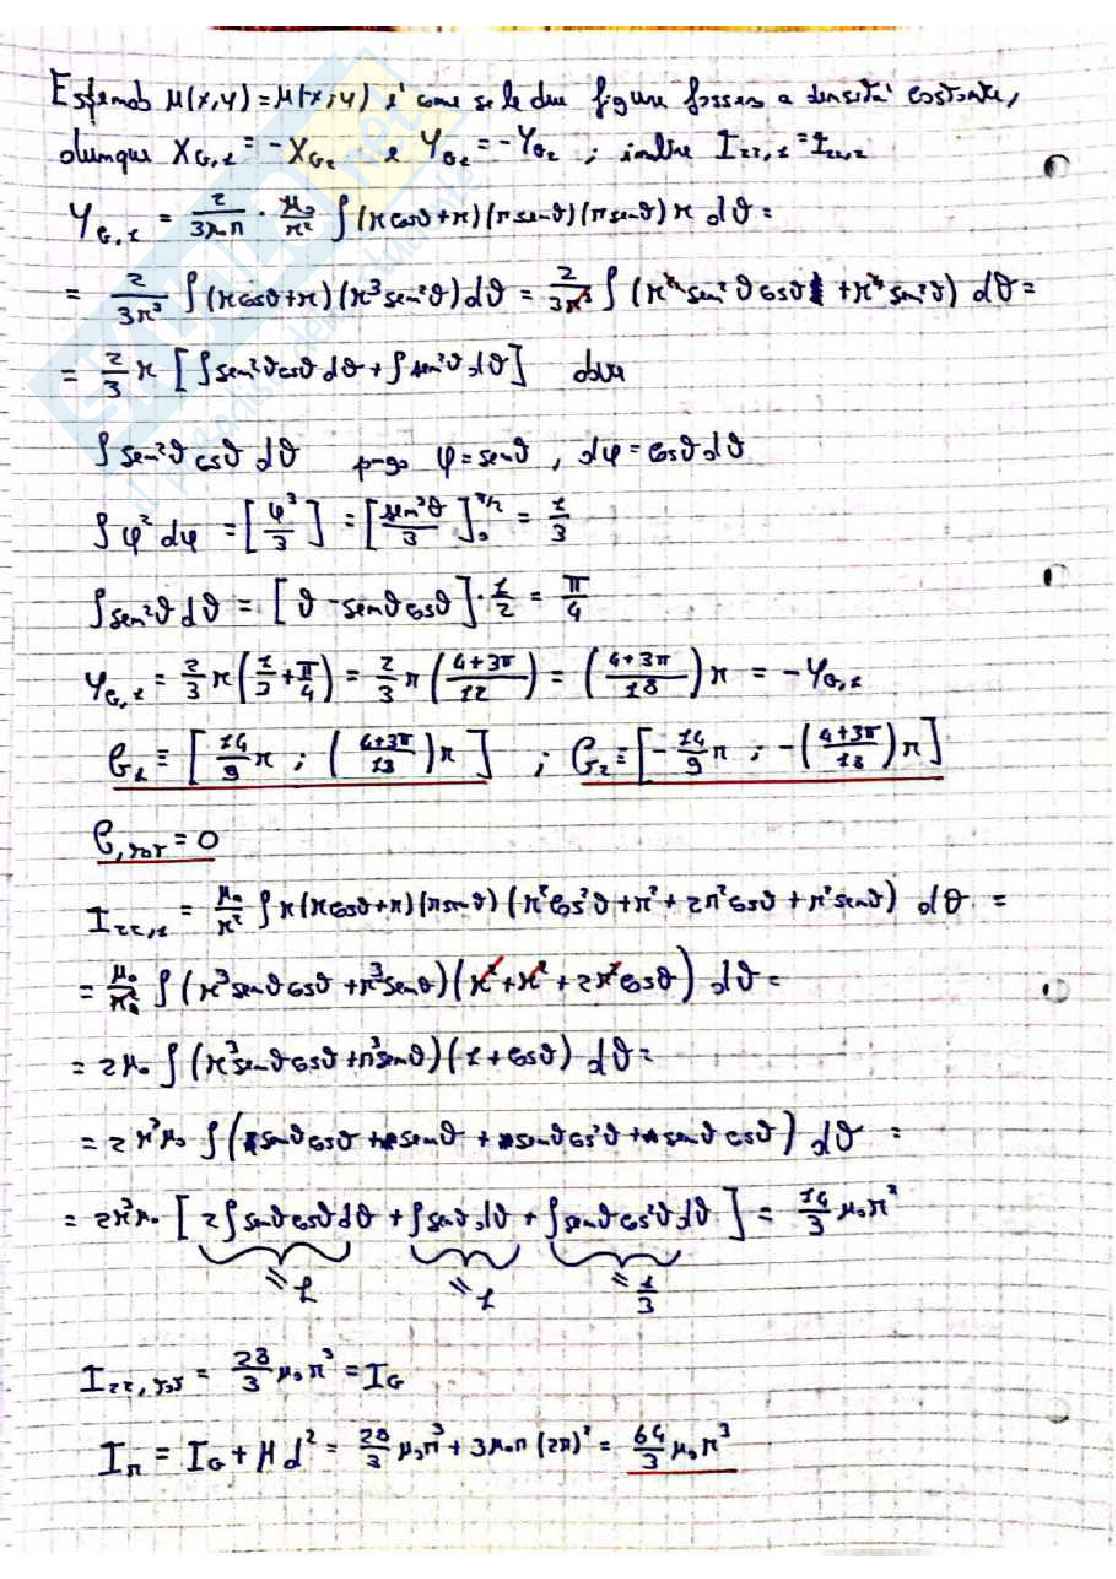 Essendo μ(x,y)=μ(-x;y) e' come se le due figure fossero a densita' costante,
dunque X_G,1 = -X_G2 e Y_G1 = -Y_G2 ; inoltre I_zz,1 = I_zz,2
Y_G,1 = 2/(3μ₀r) · μ₀/r² ∫(r cosϑ+r)(r senϑ)(r senϑ) r dϑ =
= 2/(3r³) ∫(r cosϑ+r)(r³ sen²ϑ)dϑ = 2/(3r³) ∫ (r⁴ sen²ϑ cosϑ + r⁴ sen²ϑ) dϑ =
= 2/3 r [∫sen²ϑ cosϑ dϑ + ∫sen²ϑ dϑ] dove
∫ sen²ϑ cosϑ dϑ pongo φ = senϑ , dφ = cosϑ dϑ
∫ φ² dφ = [φ³/3] = [sen³ϑ/3]₀^π/2 = 1/3
∫sen²ϑ dϑ = [ϑ - senϑ cosϑ]·1/2 = π/4
Y_G,1 = 2/3 r (1/3 + π/4) = 2/3 r ((4+3π)/12) = ((4+3π)/18) r = -Y_G,2
G₁ ≡ [14/9 r ; ((4+3π)/18) r] ; G₂ ≡ [-14/9 r ; -((4+3π)/18) r]
G,TOT = 0
I_zz,1 = μ₀/r² ∫ r(r cosϑ+r)(r senϑ)(r² cos²ϑ + r² + 2r² cosϑ + r² senϑ) dϑ =
= μ₀/r² ∫ (r³ senϑ cosϑ + r³ senϑ)(r² + r² + 2r² cosϑ) dϑ =
= 2μ₀ ∫ (r³ senϑ cosϑ + r³ senϑ)(1 + cosϑ) dϑ =
= 2r³μ₀ ∫ (senϑ cosϑ + senϑ + senϑ cos²ϑ + senϑ cosϑ) dϑ =
= 2r³μ₀ [2∫senϑ cosϑ dϑ + ∫senϑ dϑ + ∫senϑ cos²ϑ dϑ] = 14/3 μ₀r³
= 1 = 1 = 1/3
I_zz,TOT = 28/3 μ₀r³ = I_G
I_n = I_G + M d² = 28/3 μ₀r³ + 3μ₀r (2r)² = 64/3 μ₀r³